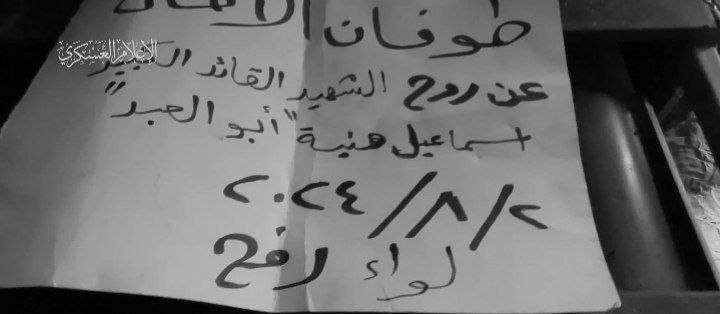 طوفان الأقصى
الإعلام العسكري
عن روح الشهيد القائد الكبير
اسماعيل هنية "أبو العبد"
٢٠٢٤/٨/٢
لواء رفح